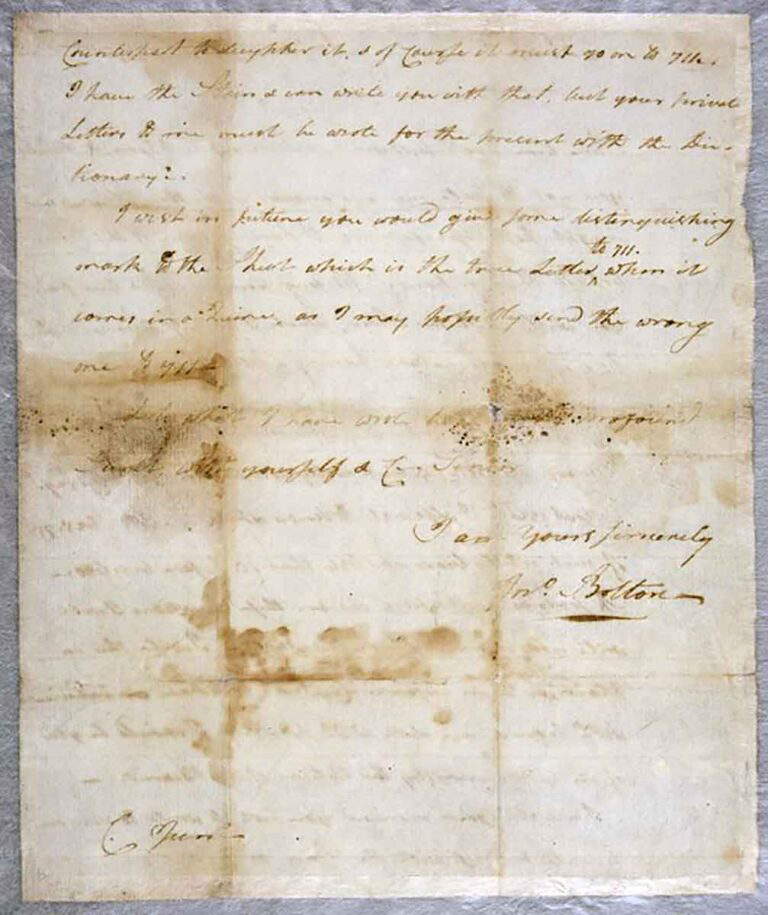 Counterpart to decypher it, & of Course it must go on to 711.
I have the Stain & can write you with that, but your private
Letters to me must be wrote for the present with the Dic-
tionary.
I wish in future you would give some distinguishing
mark to the Sheet which is the true Letter, when it
to 711.
comes in a Quire, as I may possibly send the wrong
one to 711
what I have wrote profound
yourself & C. Senior
I am Yours sincerely
Jno. Bolton
C. Junr